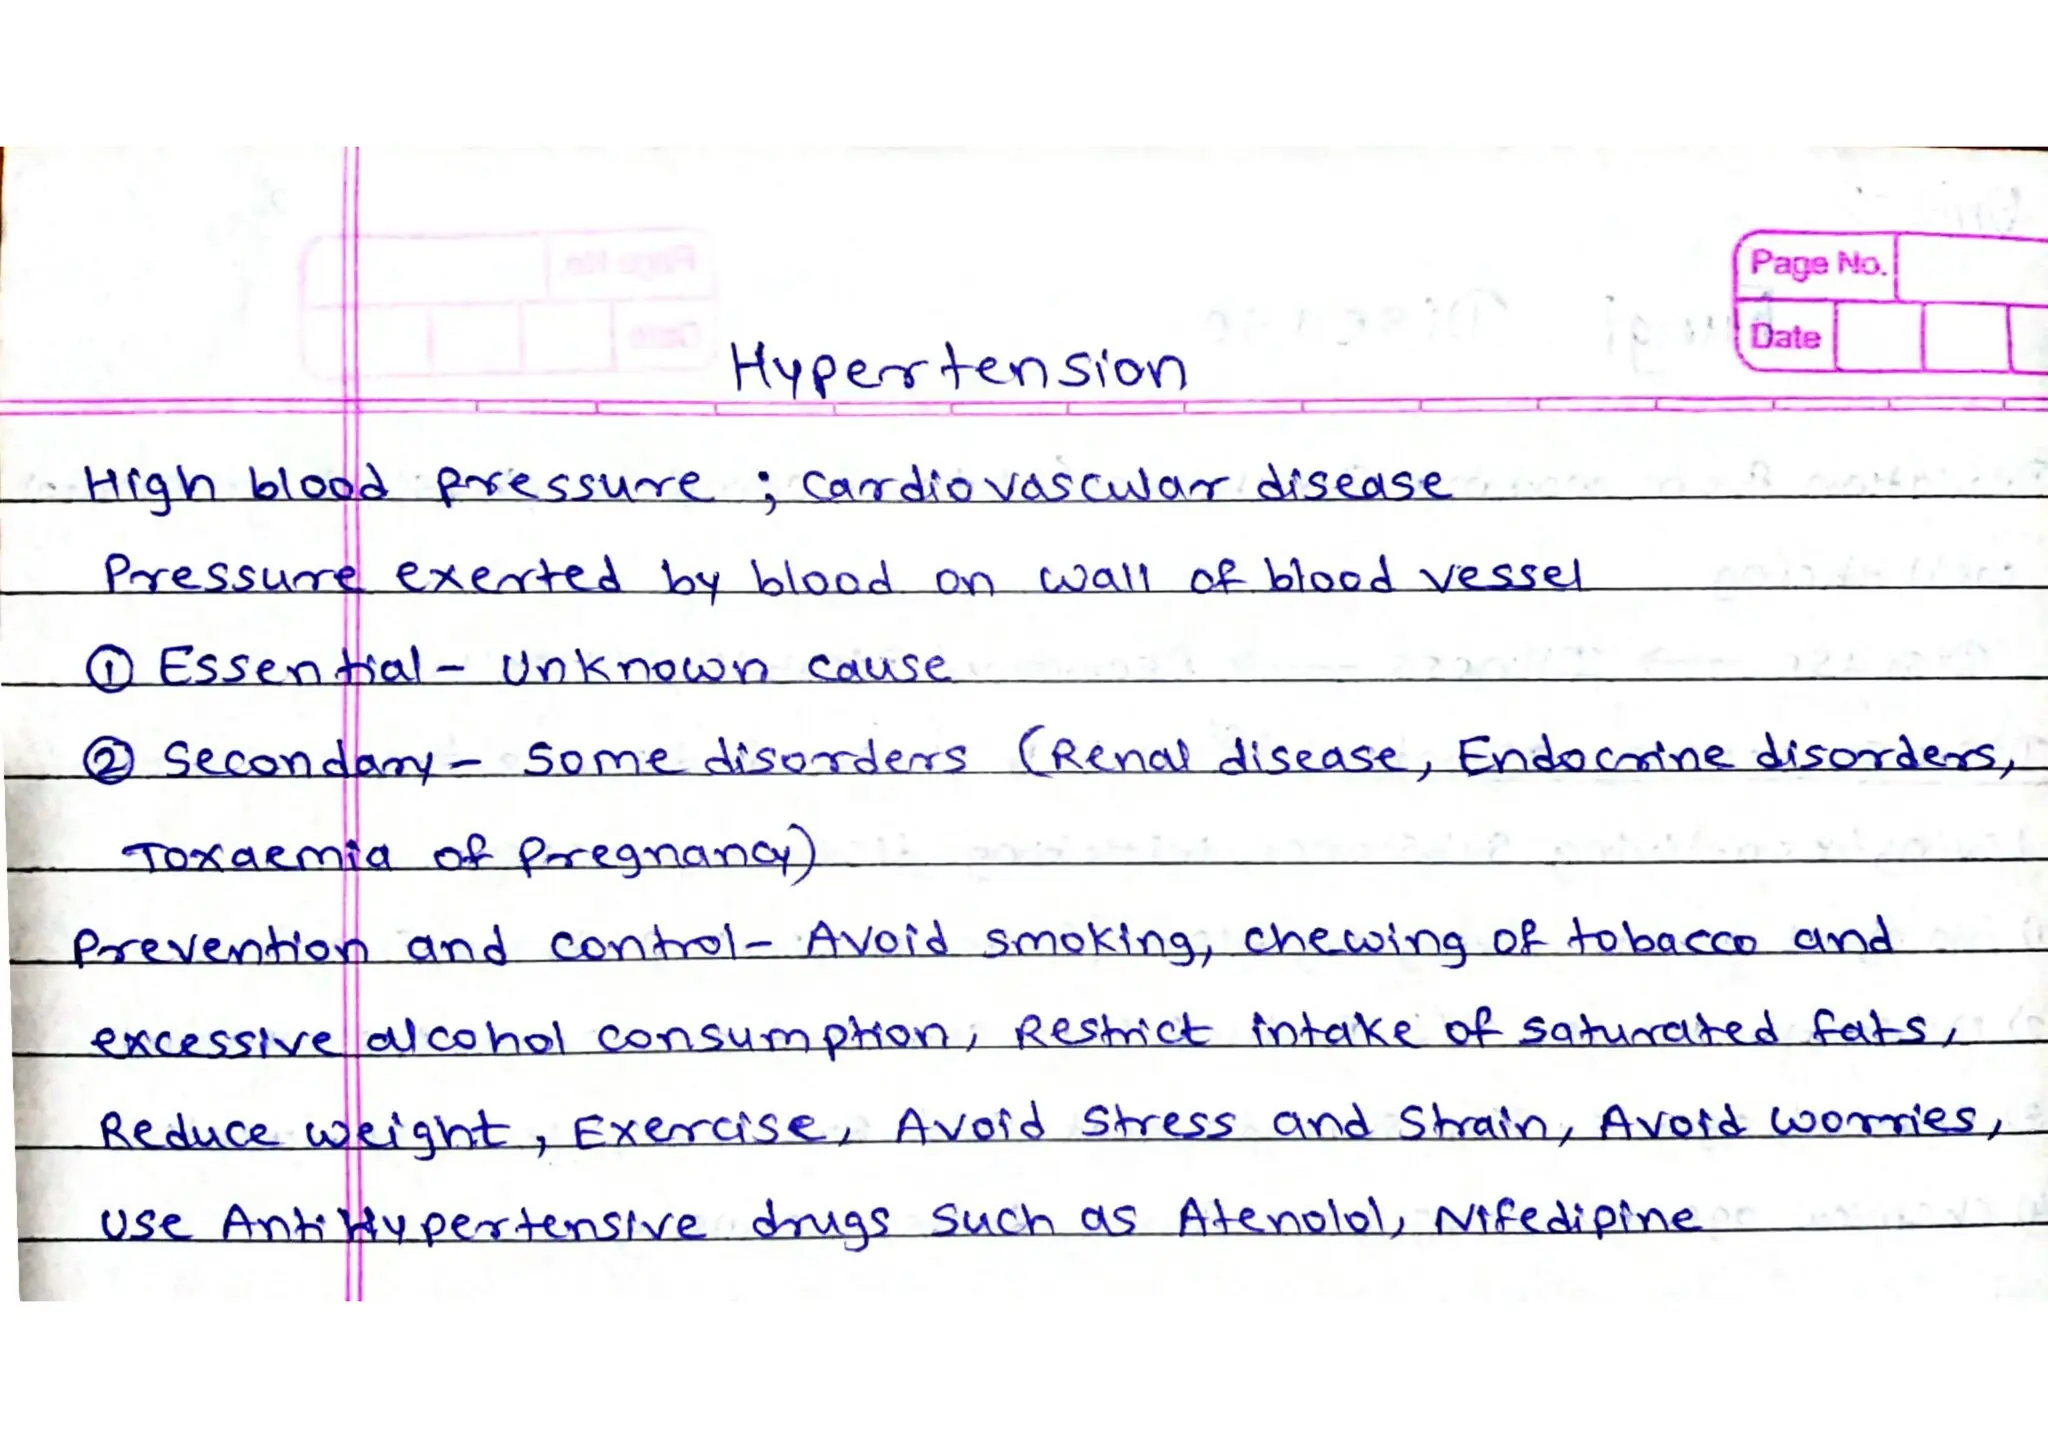 Page No.
Date
Hypertension
High blood pressure ; cardiovascular disease
Pressure exerted by blood on wall of blood vessel
① Essential - Unknown cause
② Secondary - Some disorders (Renal disease, Endocrine disorders,
Toxaemia of Pregnancy)
Prevention and control - Avoid smoking, chewing of tobacco and
excessive alcohol consumption, Restrict intake of saturated fats,
Reduce weight, Exercise, Avoid Stress and Strain, Avoid worries,
Use Anti Hypertensive drugs such as Atenolol, Nifedipine